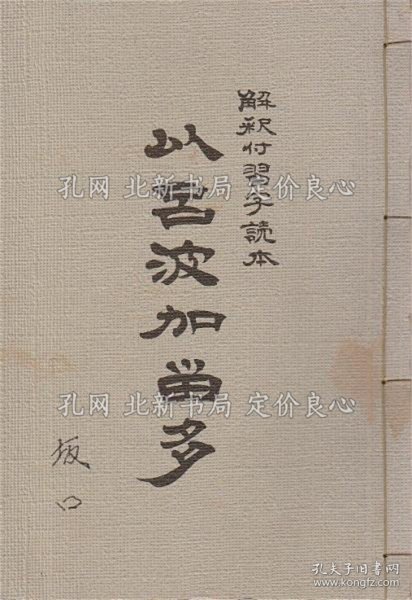 解釈付習字読本
以呂波加畄多
坂口
孔网 北新书局 定价良心
孔网 北新书局 定价良心
孔夫子旧书网
https://book.kongfz.com/